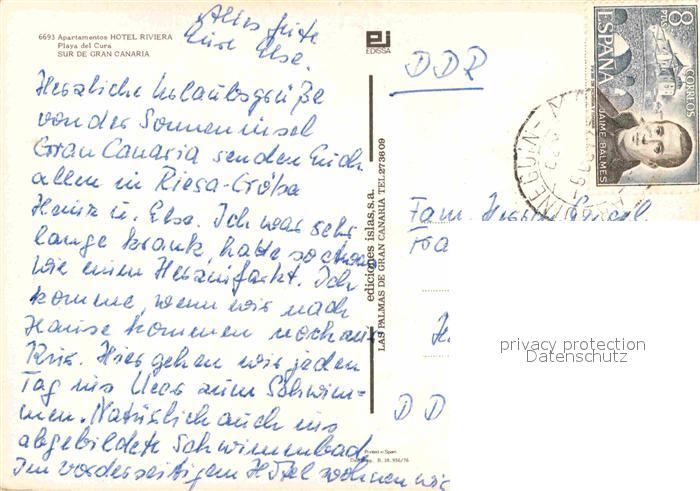 Alles Gute
Eure Else.
6693 Apartamentos HOTEL RIVIERA
Playa del Cura
SUR DE GRAN CANARIA
Herzliche Urlaubsgrüße
von der Sonneninsel
Gran Canaria senden Euch
allen in Riesa-Gröba
Heinz u. Else. Ich war sehr
lange krank, hatte so etwas
wie einen Herzinfarkt. Ich
komme, wenn wir nach
Hause kommen noch zur
Kur. Hier gehen wir jeden
Tag ins Meer zum Schwim-
men. Natürlich auch ins
abgebildete Schwimmbad
Im vorderseitigem Hotel wohnen wir
EDISSA
ediciones islas,s.a.
LAS PALMAS DE GRAN CANARIA TEL. 273609
Printed in Spain
DDR
8
PTA
ESPAÑA
CORREOS
JAIME BALMES
Fam.
DD
privacy protection
Datenschutz